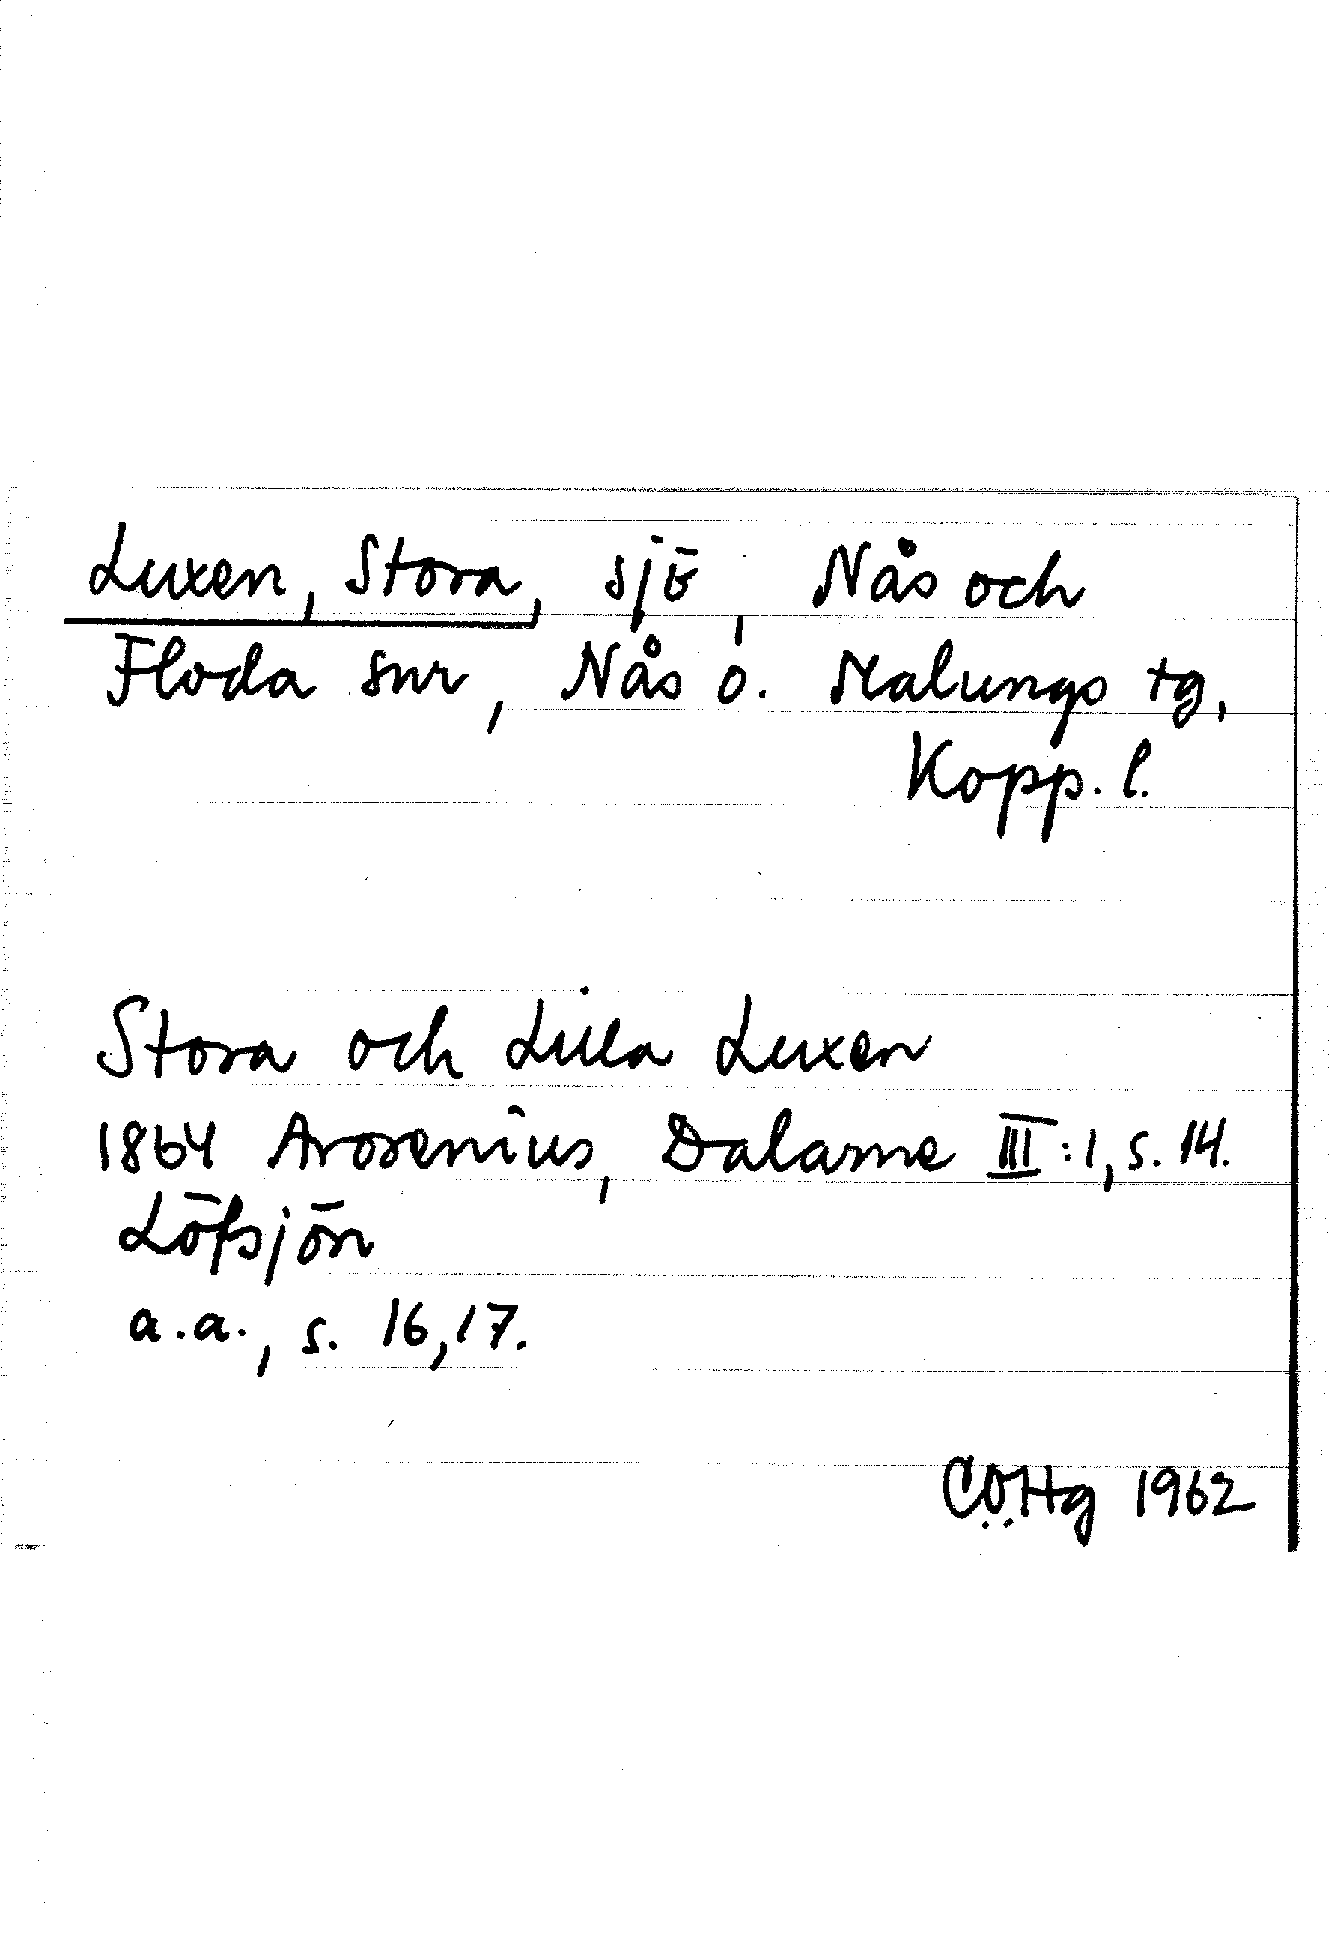 Luxen, Stora, sjö, Nås och
Floda snr, Nås o. Malungs tg,
Kopp. l.
Stora och Lilla Luxen
1864 Arosenius, Dalarne III:1, s. 14.
Löfsjön
a.a., s. 16,17.
CÖHg 1962